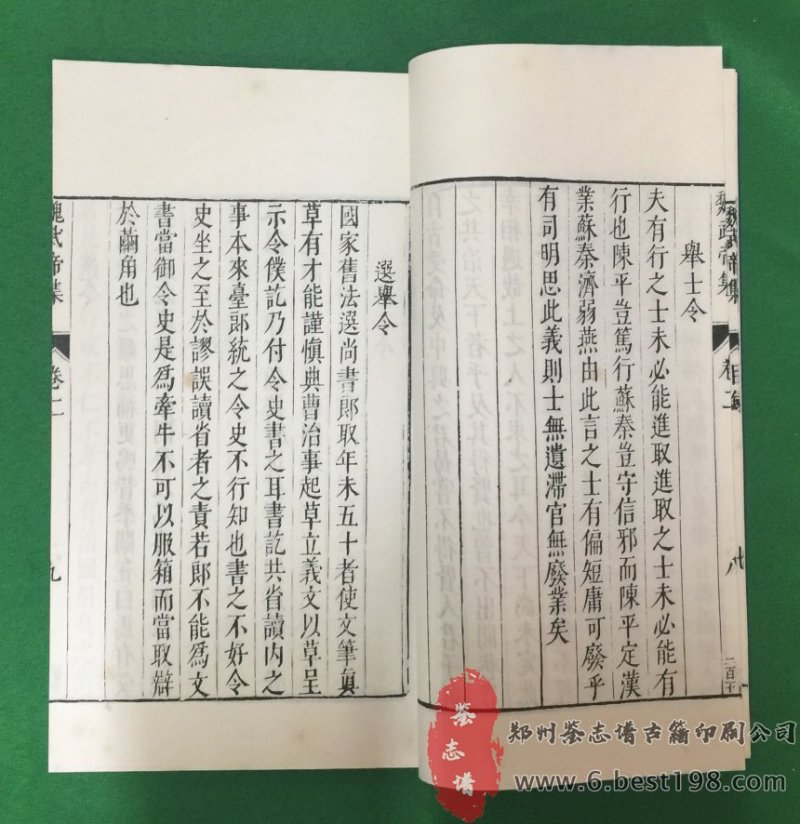 魏武帝集
卷二
舉士令
夫有行之士未必能進取進取之士未必能有
行也陳平豈篤行蘇秦豈守信邪而陳平定漢
業蘇秦濟弱燕由此言之士有偏短庸可廢乎
有司明思此義則士無遺滯官無廢業矣
二百
選舉令
國家舊法選尚書郎取年未五十者使文筆眞
草有才能謹愼典曹治事起草立義文以草呈
示令僕訖乃付令史書之耳書訖共省讀內之
事本來臺郎統之令史不行知也書之不好令
史坐之至於謬誤讀省者之責若郎不能爲文
書當御令史是爲牽牛不可以服箱而當取辯
於繭角也
魏武帝集
卷二
九
鉴志谱
郑州鉴志谱古籍印刷公司
www.6.best198.com